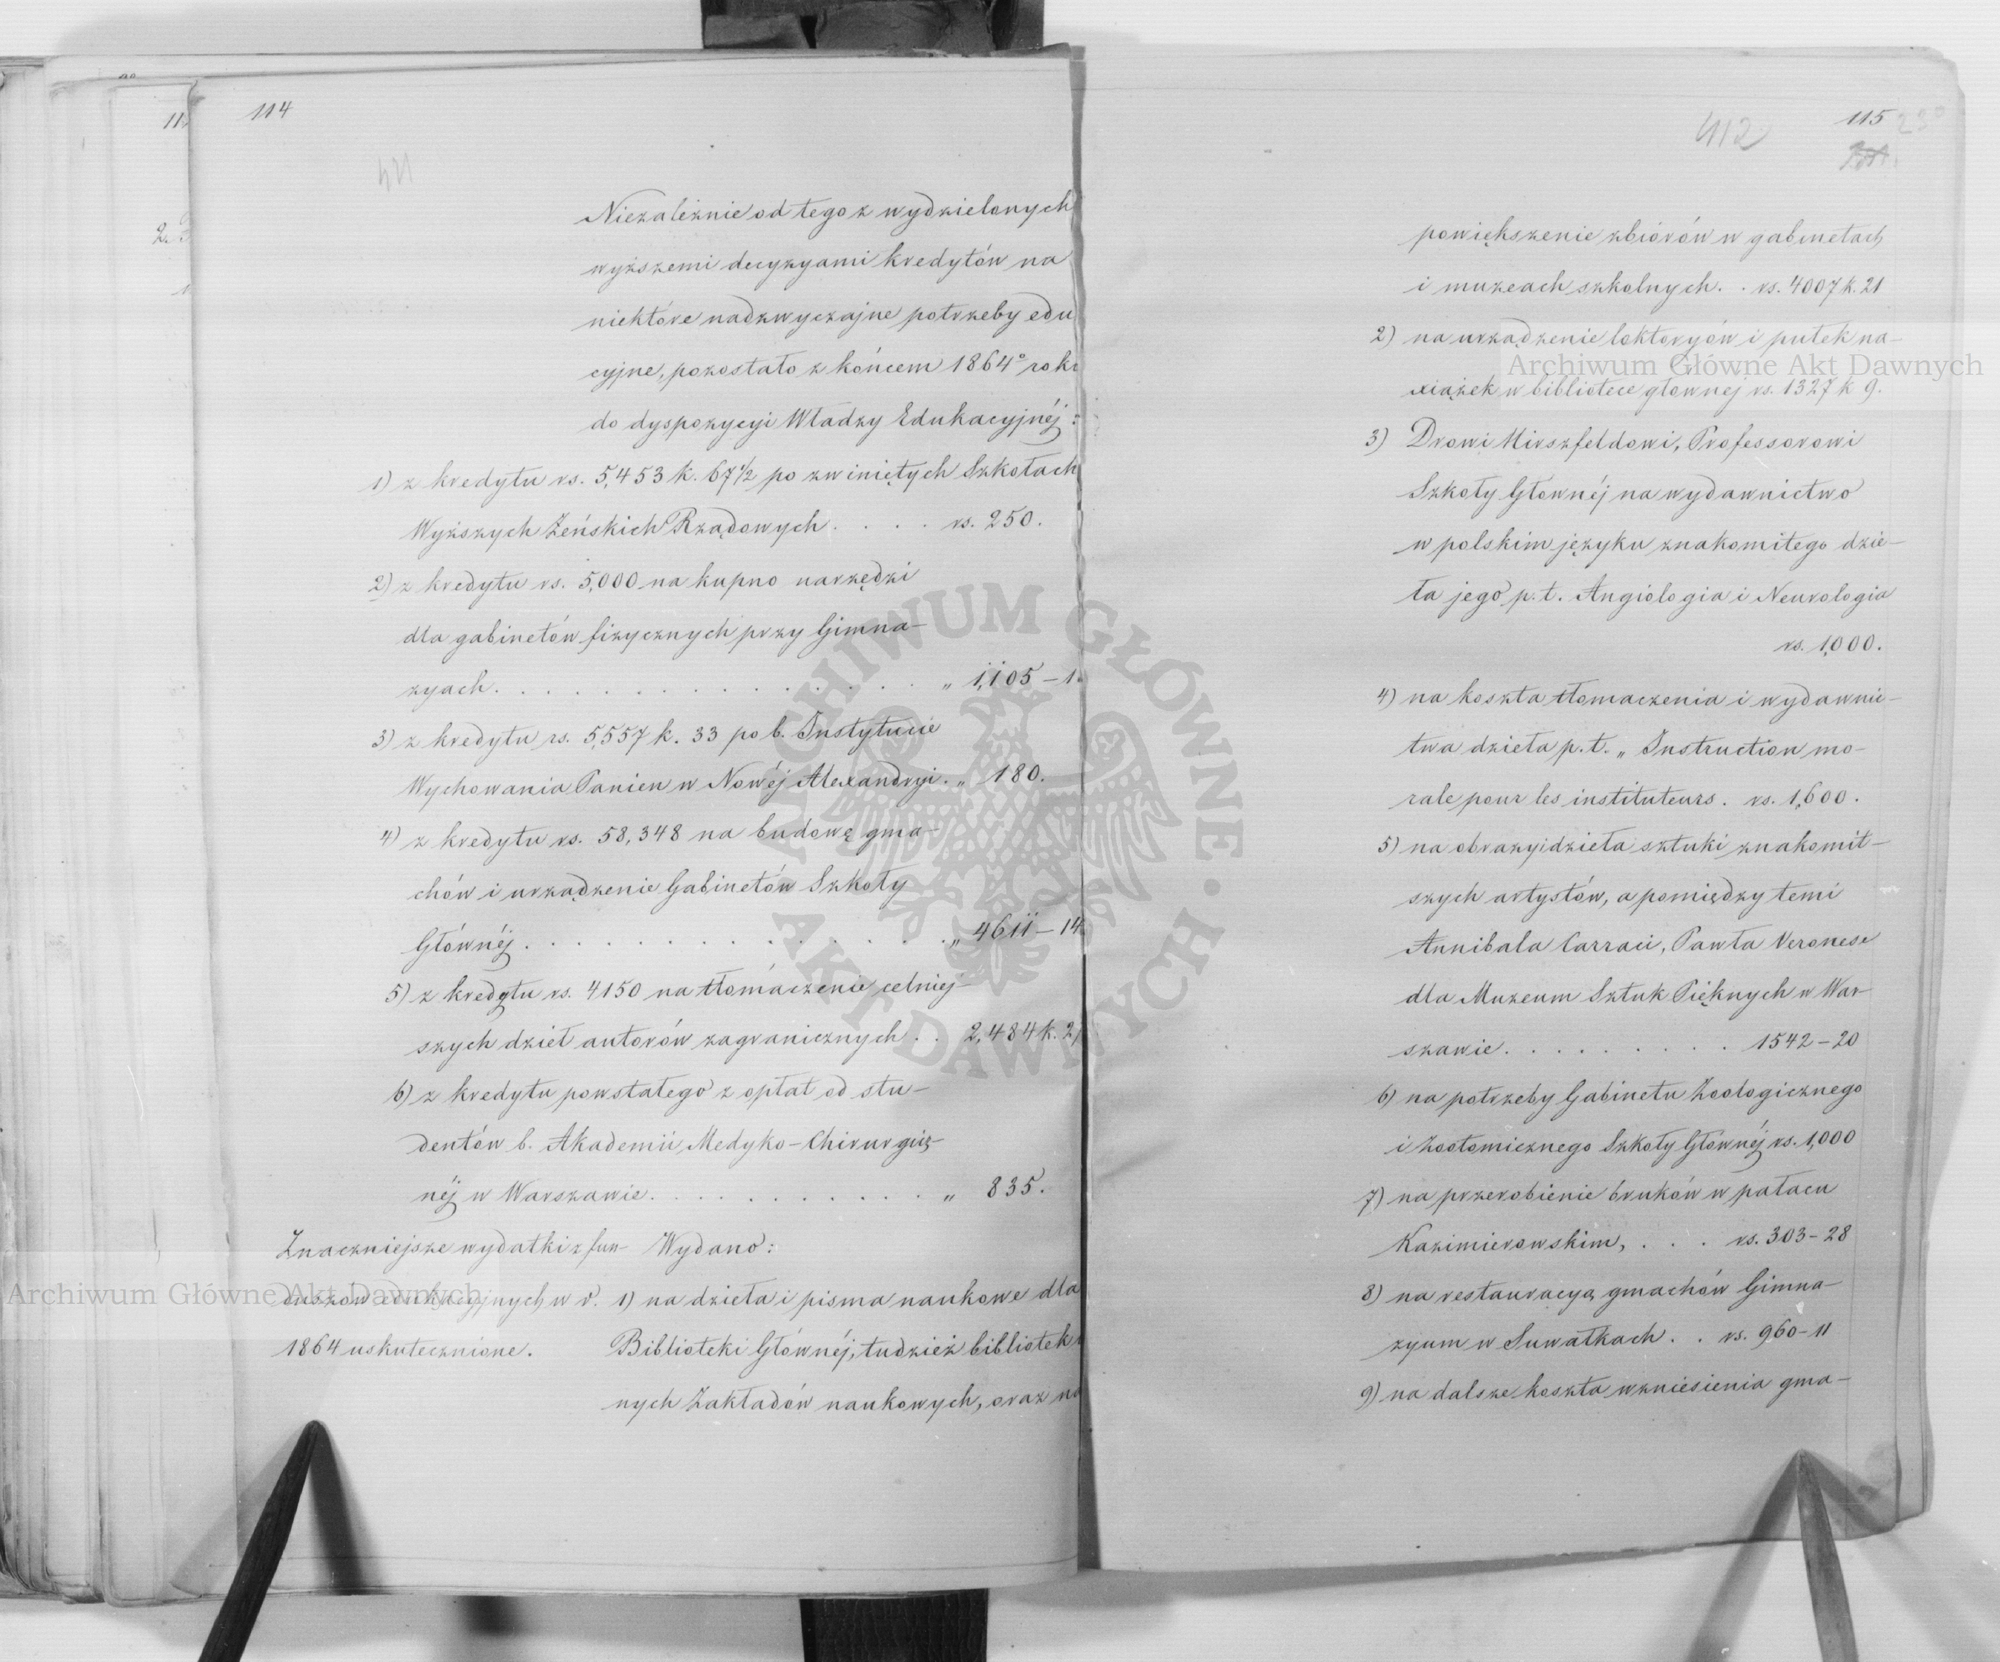 114
Niezależnie od tego z wydzielonych
wyższemi decyzyami kredytów na
niektóre nadzwyczajne potrzeby edu
cyjne, pozostało z końcem 1864º rok
do dyspozycyi Władzy Edukacyjnéj:
1) z kredytu rs. 5,453 k. 67½ po zwiniętych Szkołach
Wyższych Żeńskich Rządowych . . . . rs. 250.
2) z kredytu rs. 5,000 na kupno narzędzi
dla gabinetów fizycznych przy Gimna-
zyach. . . . . . . . . . . . . . . . „ 1,105-1
3) z kredytu rs. 5,557 k. 33 po b. Instytucie
Wychowania Panien w Nowéj Alexandryi. „ 180.
4) z kredytu rs. 58,348 na budowę gma-
chów i urządzenie Gabinetów Szkoły
Głównéj. . . . . . . . . . . . . . . „ 4611-14
5) z kredytu rs. 4150 na tłómaczenie celniej-
szych dzieł autorów zagranicznych . . 2,484 k. 2
6) z kredytu powstałego z opłat od stu-
dentów b. Akademii Medyko-Chirurgicz-
néj w Warszawie. . . . . . . . . . . „ 835.
Znaczniejsze wydatki z fun- Wydano:
duszów edukacyjnych w r. 1) na dzieła i pisma naukowe dla
1864 uskutecznione. Biblioteki Głównéj, tudzież bibliotek
nych Zakładów naukowych, oraz na
115
412
powiększenie zbiorów w gabinetach
i muzeach szkolnych. . rs. 4007 k. 21
2) na urządzenie loktoryów i pułek na-
xiążek w bibliotece głównej rs. 1327 k 9.
3) Drowi Hirszfeldowi, Professorowi
Szkoły Głównéj na wydawnictwo
w polskim języku znakomitego dzie-
ła jego p. t. Angiologia i Neurologia
rs. 1,000.
4) na koszta tłomaczenia i wydawnic-
twa dzieła p. t. „ Instruction mo-
rale pour les instituteurs. rs. 1,600.
5) na obrazy i dzieła sztuki znakomit-
szych artystów, a pomiędzy temi
Annibala Carraci, Pawła Veronese
dla Muzeum Sztuk Pięknych w War-
szawie. . . . . . . . . 1542-20
6) na potrzeby Gabinetu Zoologicznego
i Zootomicznego Szkoły Głównéj rs. 1,000
7) na przerobienie bruków w pałacu
Kazimierowskim, . . . rs. 303-28
8) na restauracyą gmachów Gimna-
zyum w Suwałkach. . rs. 960-11
9) na dalsze koszta wzniesienia gma-
Archiwum Główne Akt Dawnych
Archiwum Główne Akt Dawnych
ARCHIWUM GŁÓWNE • AKT DAWNYCH •